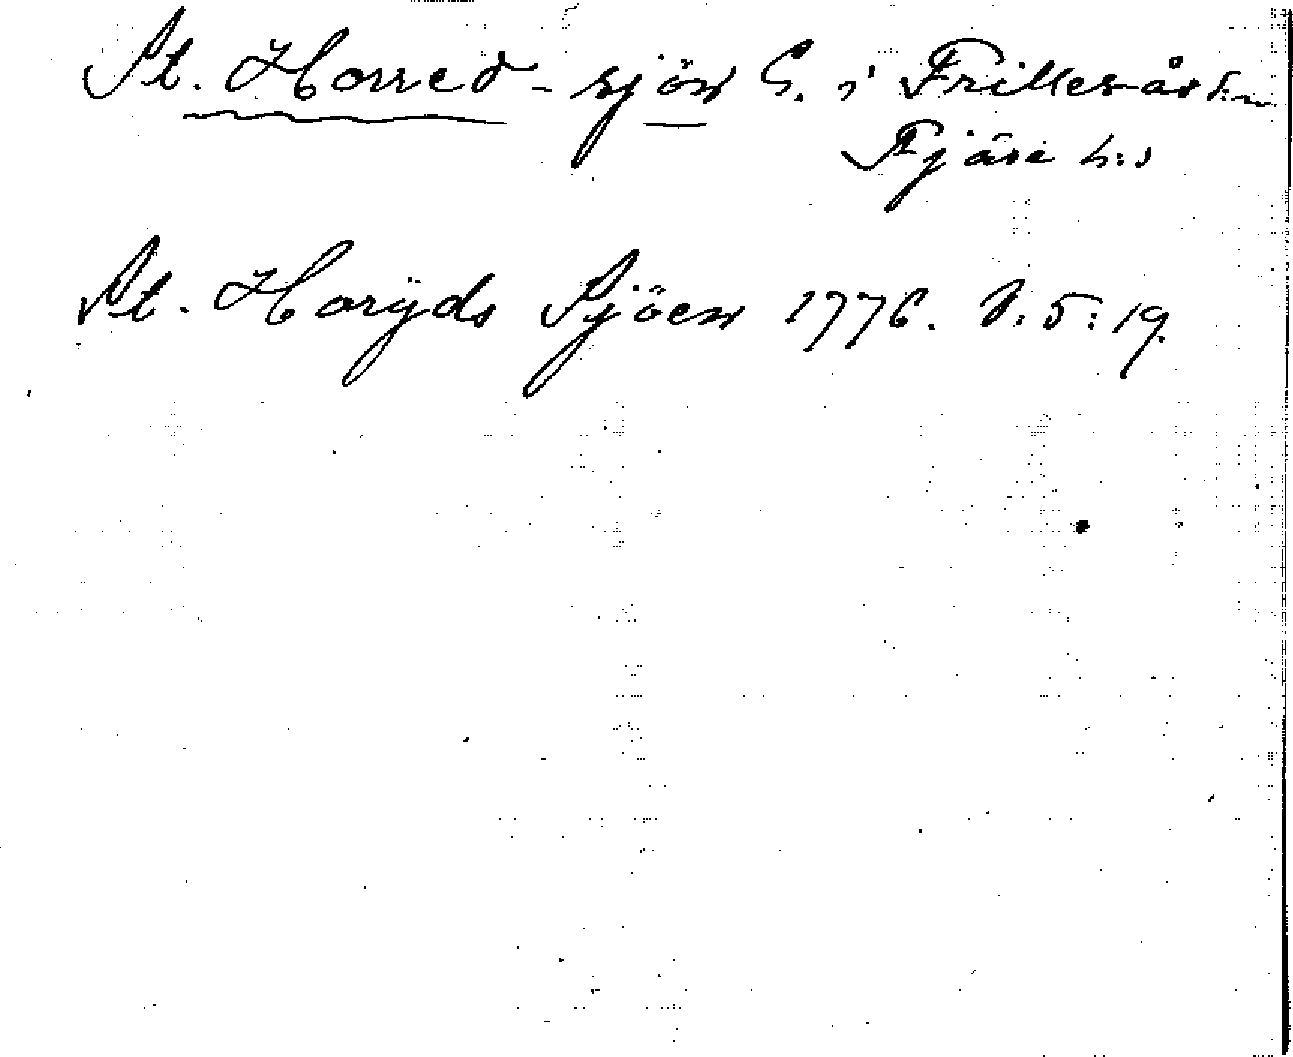 St. Horred-sjön S. i Frillesås sn
Fjäre h:d
St. Horÿds Sjöen 1776. S:5:19.